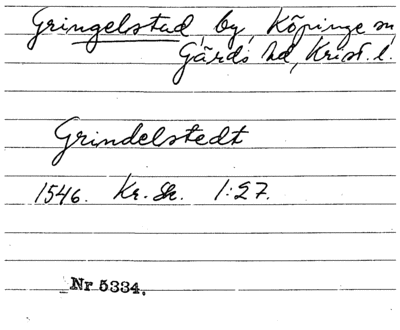 Gringelstad by, Köpinge sn,
Gärds hd, Krist. l.
Grindelstedt
1546. Kr. Sk. 1:27.
Nr 5334.